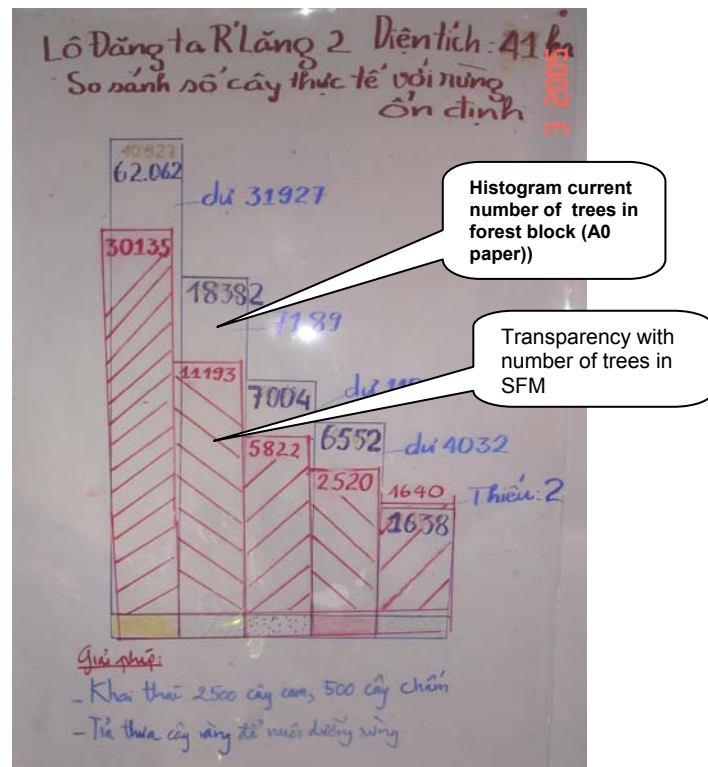 Lô Đăng ta R'Lăng 2 Diện tích: 41 ha
So sánh số cây thực tế với rừng
ổn định
3 2005
40827
62.062
dư 31927
30135
18382
7189
11193
7004
dư
5822
6552
dư 4032
2520
1640
Thiếu: 2
1638
Histogram current
number of trees in
forest block (A0
paper))
Transparency with
number of trees in
SFM
Giải pháp:
- Khai thác 2500 cây cam, 500 cây chấm
- Tỉa thưa cây vàng để nuôi dưỡng rừng